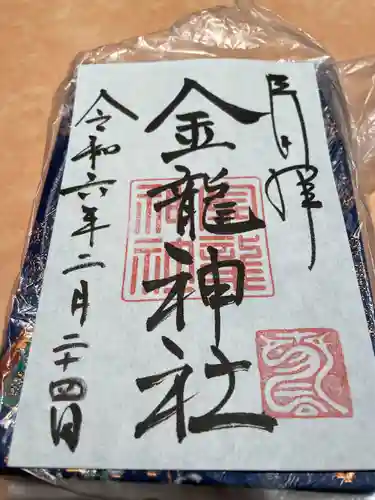 奉拝
金龍神社
令和六年二月二十四日